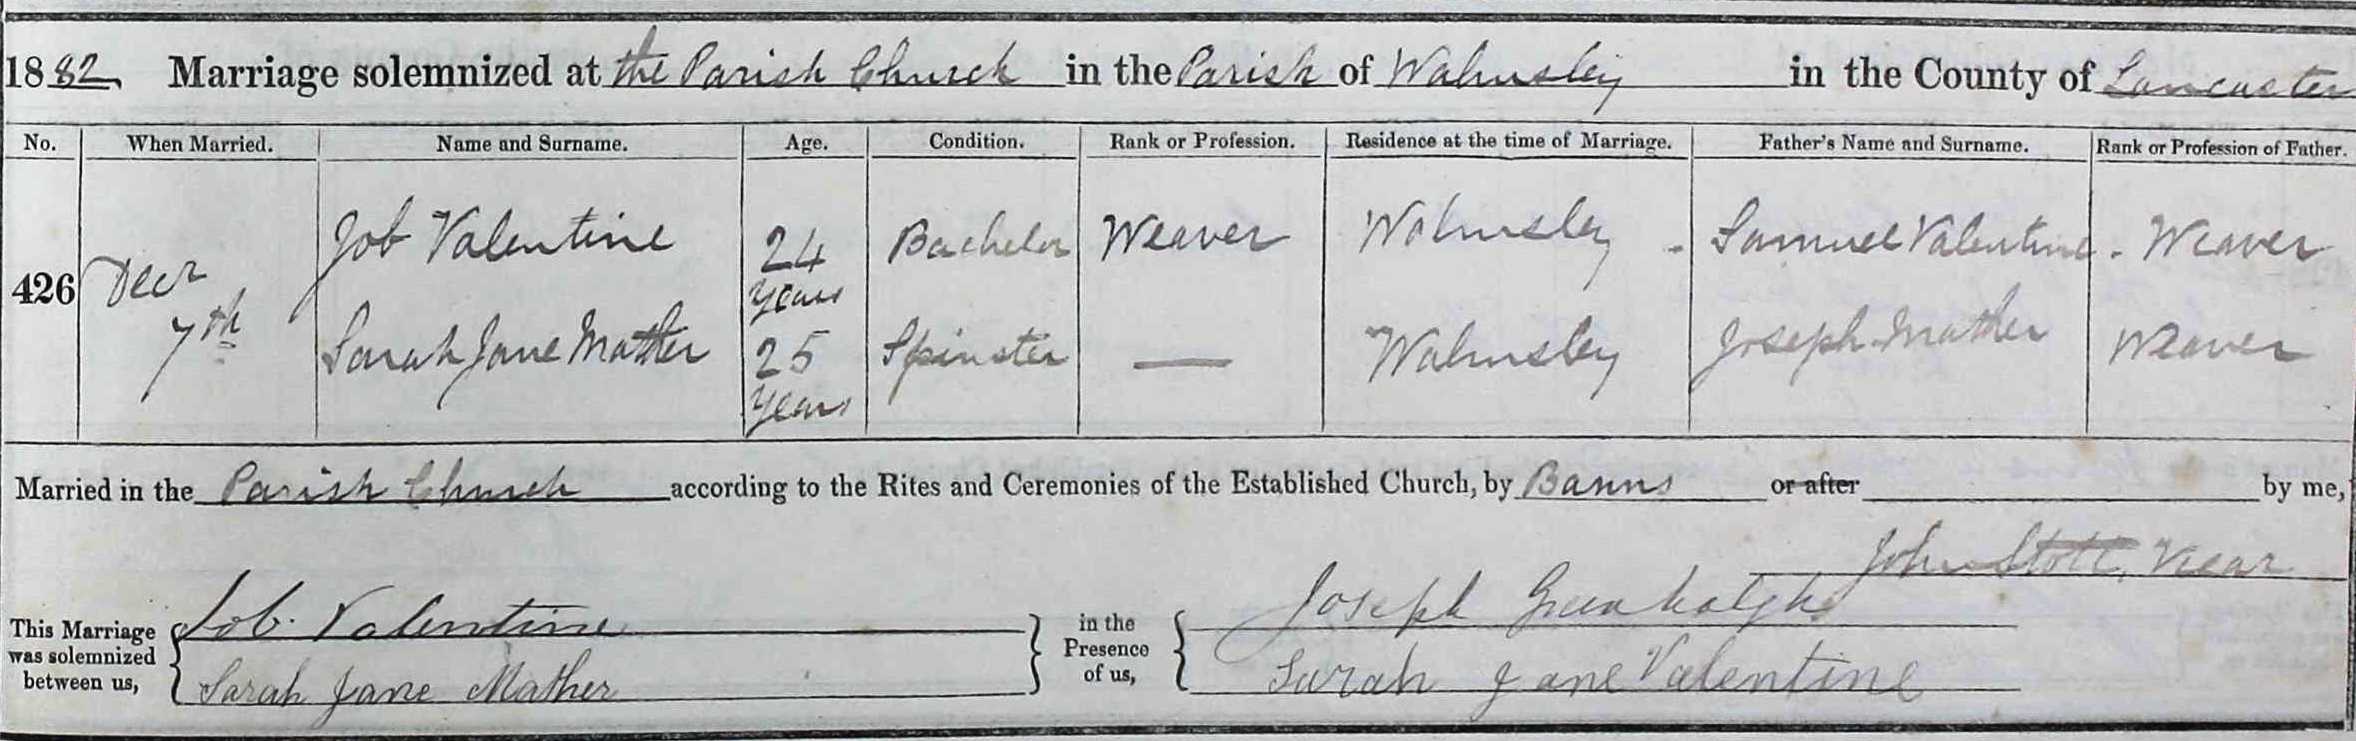 1882 Marriage solemnized at the Parish Church in the Parish of Walmsley in the County of Lancaster
No. When Married. Name and Surname. Age. Condition. Rank or Profession. Residence at the time of Marriage. Father's Name and Surname. Rank or Profession of Father.
Job Valentine 24 years Bachelor Weaver Walmsley - Samuel Valentine - Weaver
426 Decr 7th
Sarah Jane Mather 25 years Spinster — Walmsley Joseph Mather Weaver
Married in the Parish Church according to the Rites and Ceremonies of the Established Church, by Banns or after by me,
John Stott, Vicar
This Marriage was solemnized between us, Job Valentine in the Presence of us, Joseph Greenhalgh
Sarah Jane Mather Sarah Jane Valentine